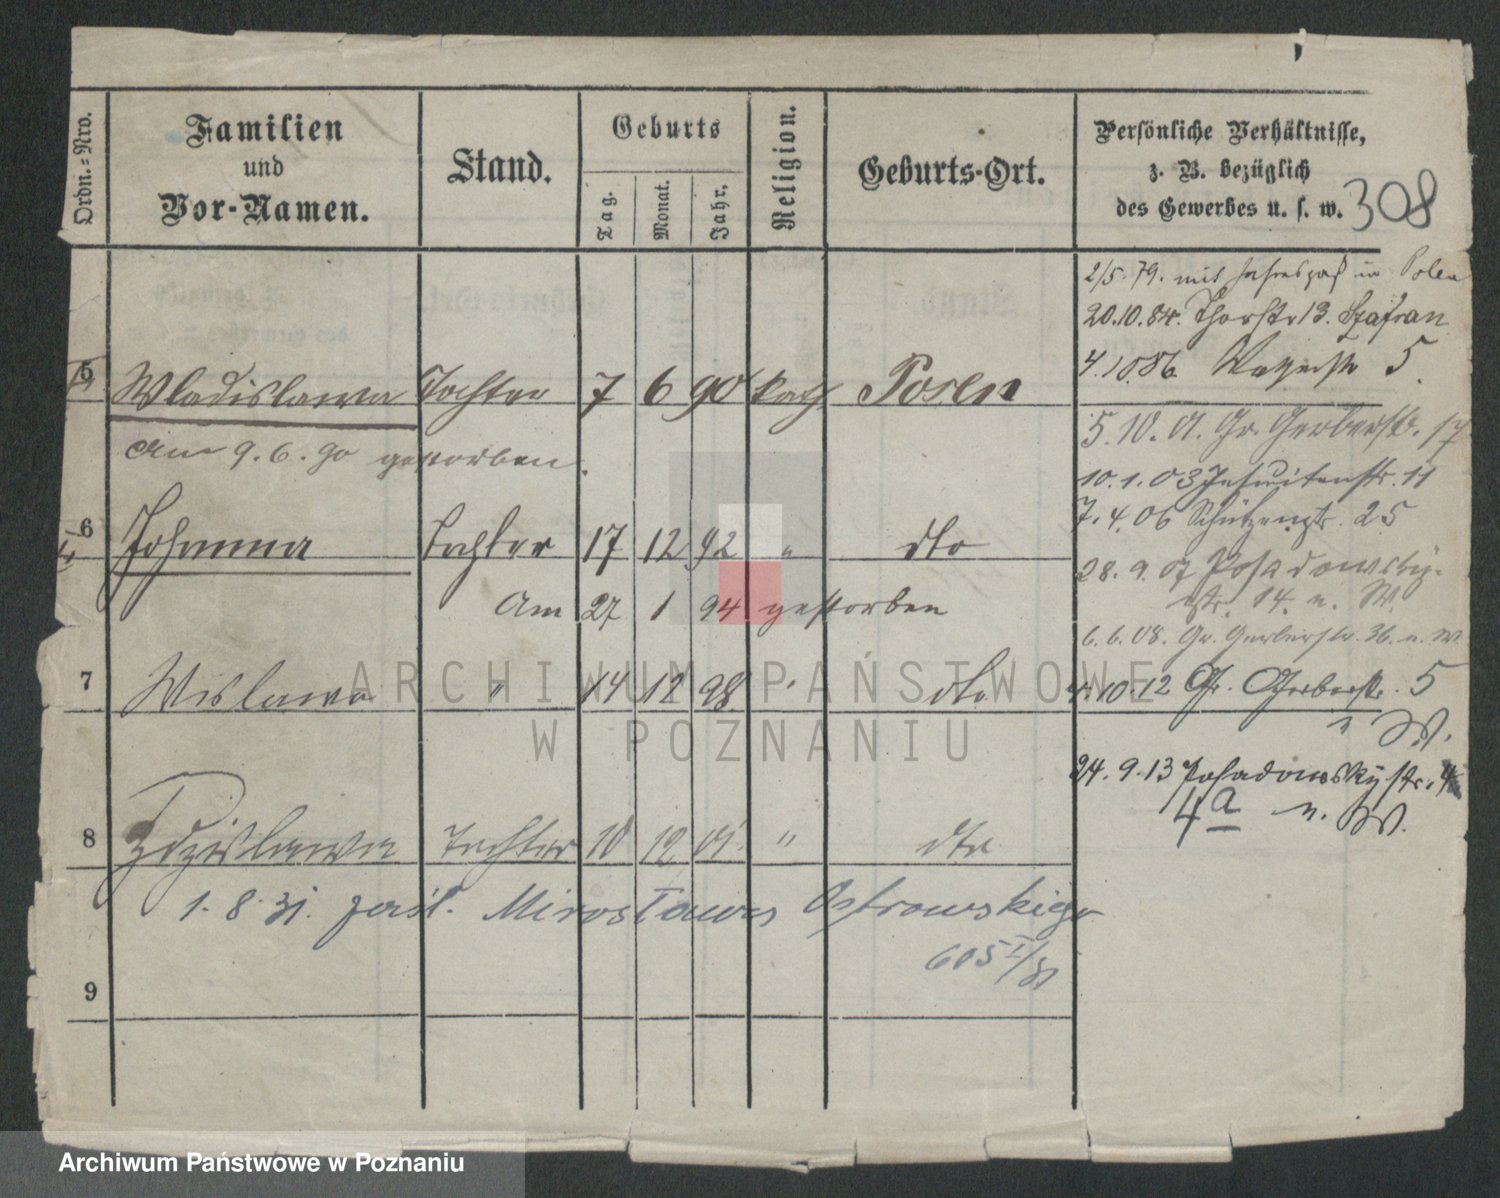 Ordn.=Nro.
Familien
und
Vor-Namen.
Stand.
Geburts
Tag.
Monat.
Jahr.
Religion.
Geburts-Ort.
Persönliche Verhältnisse,
z. B. bezüglich
des Gewerbes u. s. w.
308
2/5. 79. mit Jahrespaß in Polen
20.10.84. Thorstr 13. Szafran
4.10.86. 5.
5 Wladislawa Tochter 7 6 90 kath Posen
5.10.01. Gr. Gerberstr. 17
am 9. 6. 90 gestorben.
10.1.03 Jesuitenstr. 11
7.4.06 Schützenstr. 25
6 Johanna Tochter 17 12 92 " dto
28.9.07 Posadowsky-
str. 14. u. W.
Am 27 1 94 gestorben
6.6.08. Gr. Gerberstr. 36. u. W
7 Wislawa " 14 12 98 " dto
10.12 Gr. Gerberstr. 5
u W.
24.9.13 Posadowskystr. 4
4a u. W.
8 Zdzislawa Tochter 10 12 01 " dto
1. 8. 31. Mirosława Ostrowskiego
605 I/31
9
ARCHIWUM PAŃSTWOWE
W POZNANIU
Archiwum Państwowe w Poznaniu